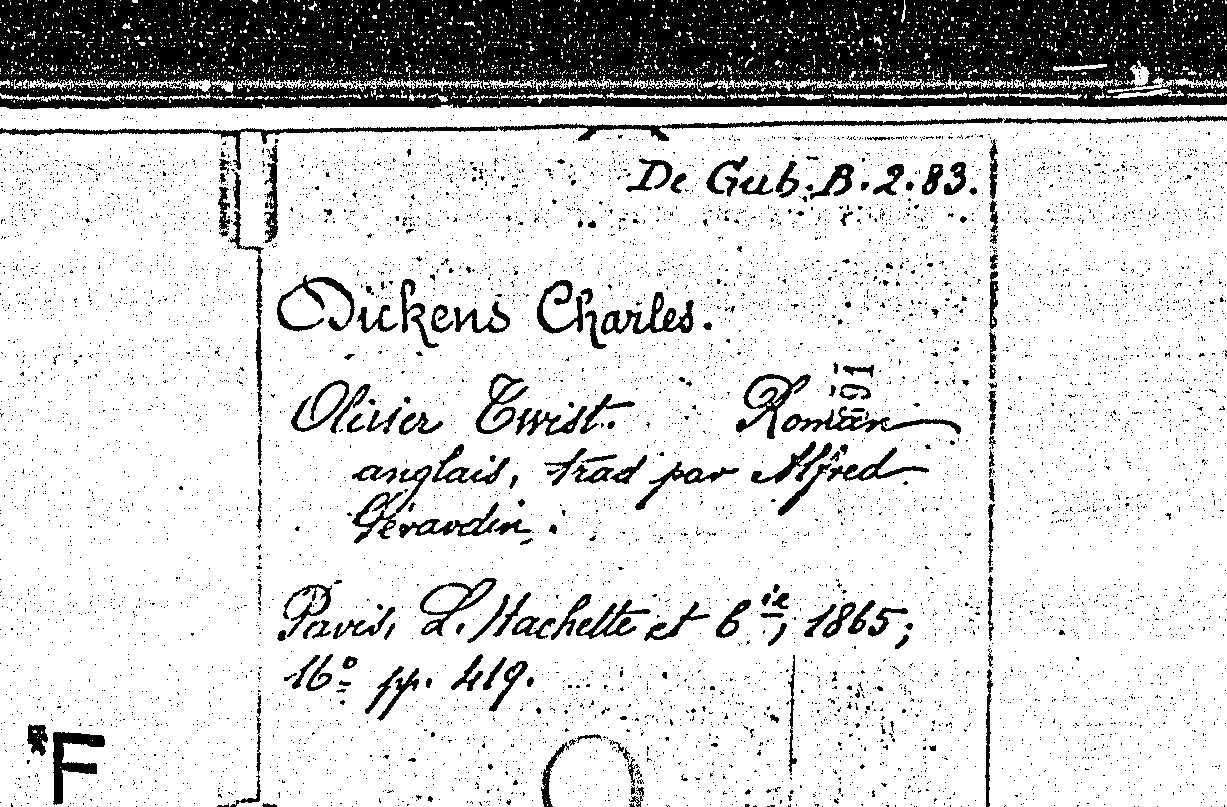 De Gub. B. 2. 83.
Dickens Charles.
Olivier Twist. Roman
anglais, trad par Alfred
Gérardin.
Paris, L. Hachette et Cie, 1865;
16º pp. 419.
F